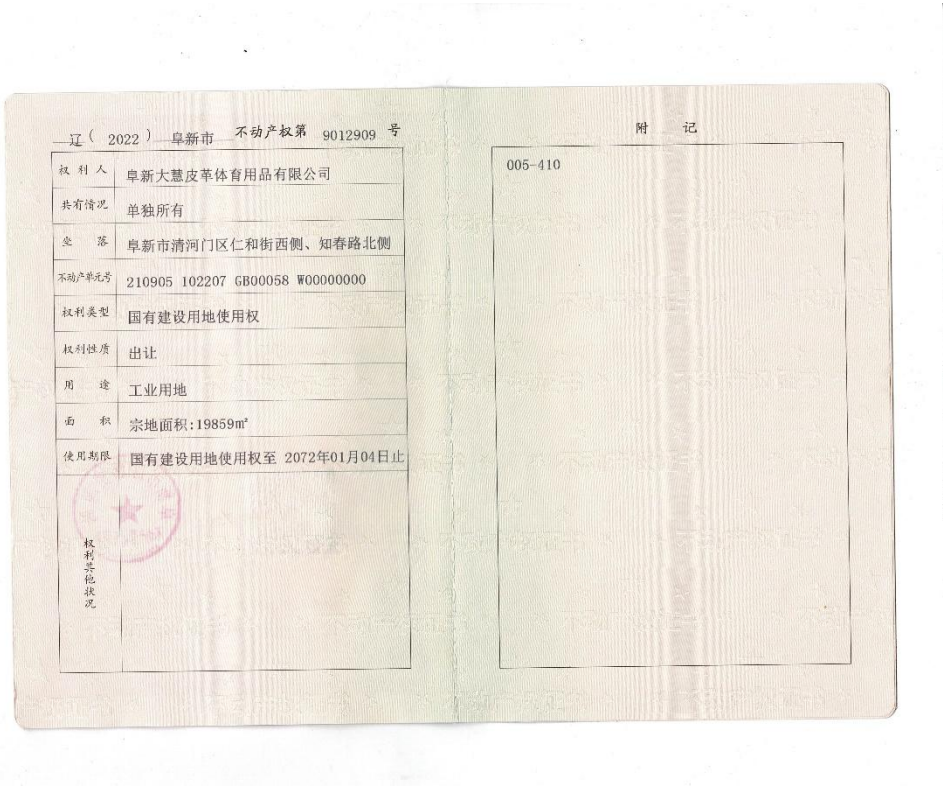 辽（ 2022 ） 阜新市 不动产权第 9012909 号
权利人 阜新大慧皮革体育用品有限公司
共有情况 单独所有
坐落 阜新市清河门区仁和街西侧、知春路北侧
不动产单元号 210905 102207 GB00058 W00000000
权利类型 国有建设用地使用权
权利性质 出让
用途 工业用地
面积 宗地面积:19859㎡
使用期限 国有建设用地使用权至 2072年01月04日止
权利其他状况
附 记
005-410